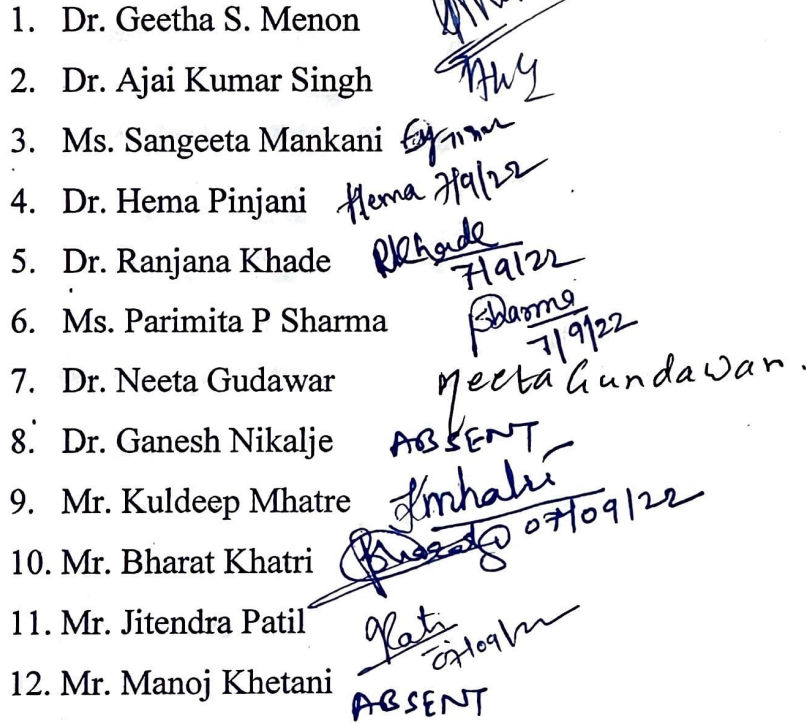 1. Dr. Geetha S. Menon
2. Dr. Ajai Kumar Singh
3. Ms. Sangeeta Mankani
4. Dr. Hema Pinjani Hema 7/9/22
5. Dr. Ranjana Khade RKhade 7/9/22
6. Ms. Parimita P Sharma Sharma 7/9/22
7. Dr. Neeta Gudawar Neeta Gundawar.
8. Dr. Ganesh Nikalje ABSENT
9. Mr. Kuldeep Mhatre 07/09/22
10. Mr. Bharat Khatri
11. Mr. Jitendra Patil 07/09/22
12. Mr. Manoj Khetani ABSENT